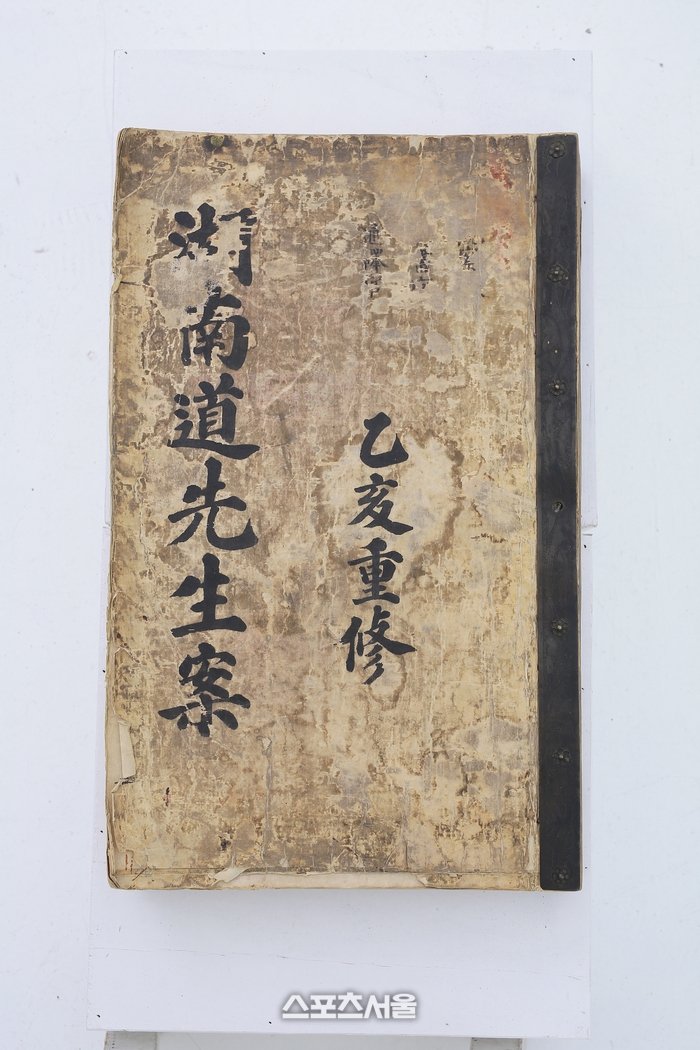 乙亥重修
湖南道先生案
스포츠서울